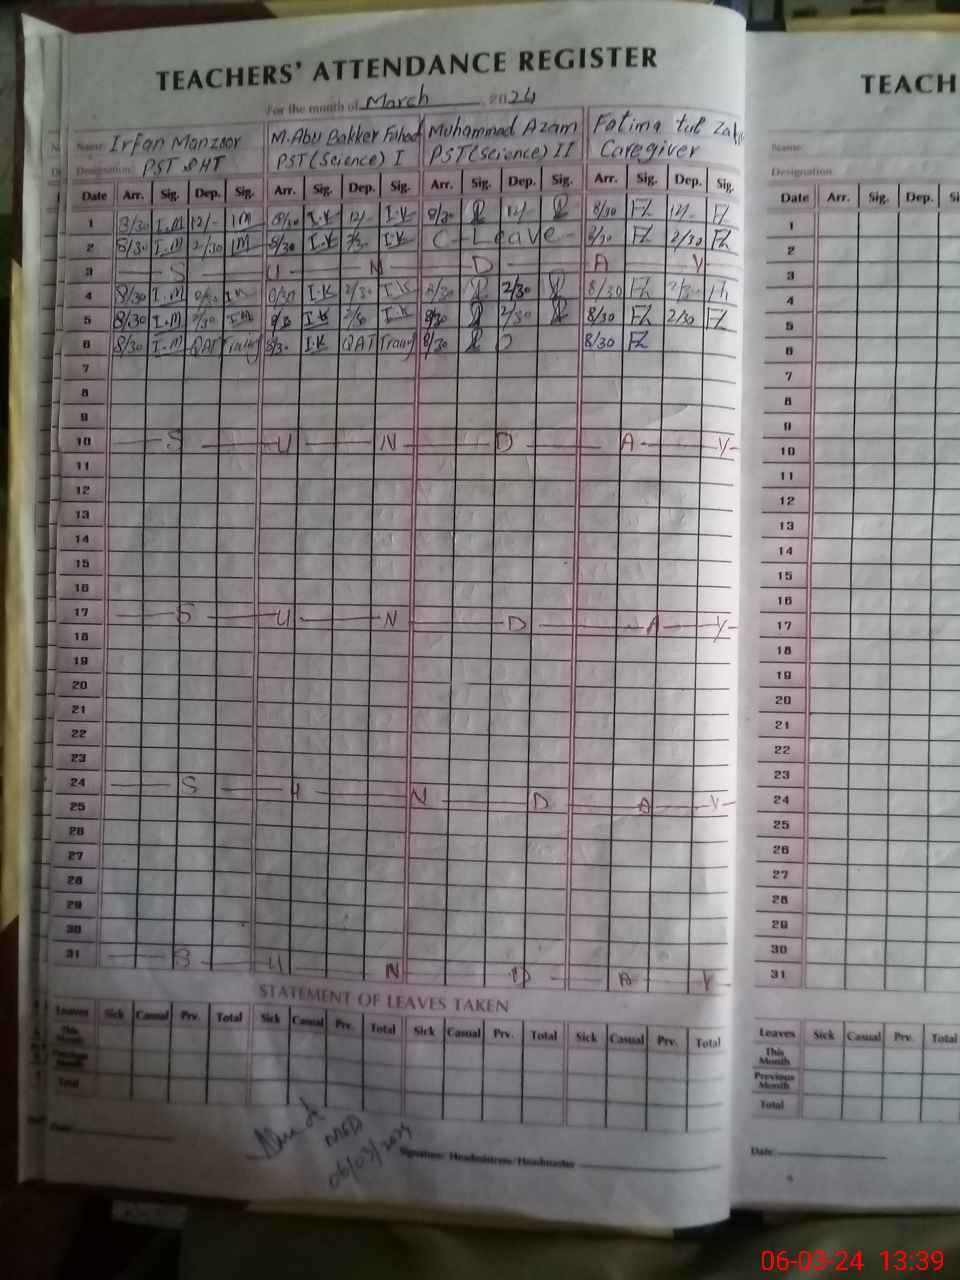 TEACHERS' ATTENDANCE REGISTER
For the month of March 2024
Name: Irfan Manzoor M. Abu Bakker Fahad Muhammad Azam Fatima tul
Designation: PST SHT PST (Science) I PST (Science) II Caregiver
Date Arr. Sig. Dep. Sig. Arr. Sig. Dep. Sig. Arr. Sig. Dep. Sig. Arr. Sig. Dep. Sig.
1 8/30 I.M 12/- IM 8/30 I.K 12/- I.K 8/30 12/- 8/30 FZ 12/- FZ
2 8/30 I.M 2/30 IM 8/30 I.K I.K C-Leave- 8/30 FZ 2/30 FZ
3 S U N D A Y
4 8/30 I.M 8/30 I.K 2/30 I.K 8/30 2/30 8/30 FZ 2/30
5 8/30 I.M 2/30 IM I.K 2/30 I.K 8/30 2/30 8/30 FZ 2/30 FZ
6 8/30 I.M QAT 8/30 I.K QAT 8/30 8/30 FZ
7
8
9
10 S U N D A Y
11
12
13
14
15
16
17 S U N D A Y
18
19
20
21
22
23
24 S U N D A Y
25
26
27
28
29
30
31 S U N D A Y
STATEMENT OF LEAVES TAKEN
Leaves Sick Casual Prv. Total Sick Casual Prv. Total Sick Casual Prv. Total Sick Casual Prv. Total
This Month
Previous Month
Total
06/03/2024
Date:
Signature: Headmistress/Headmaster
TEACH
Name:
Designation
Date Arr. Sig. Dep. Si
1
2
3
4
5
6
7
8
9
10
11
12
13
14
15
16
17
18
19
20
21
22
23
24
25
26
27
28
29
30
31
Leaves Sick Casual Prv. Total
This Month
Previous Month
Total
Date:
06-03-24 13:39